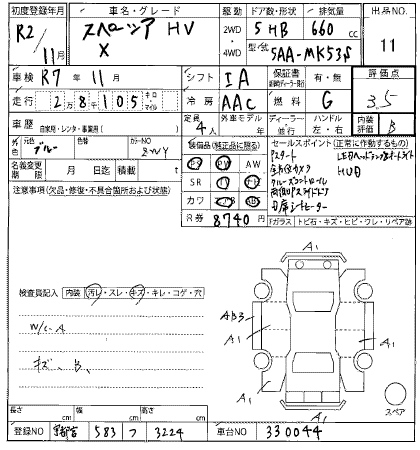 初度登録年月 車名・グレード 駆動 ドア数・形状 排気量 出品NO.
R2/11月 スペーシア HV X 2WD 4WD 5 HB 660 cc 11
型式 5AA-MK53S
車検 R7年 11月 シフト IA 保証書 有・無 評価点
走行 2 8 105 キロ・マイル 冷房 AAC 燃料 G 3.5
車歴 自家用・レンタ・事業用( ) 定員 4人 外車モデル 年 ディーラー 並行 ハンドル 左・右 内装評価 B
元色 ブルー 色替 カラーNO ZWY
装備品(純正品に限る) セールスポイント(正常に作動するもの)
名義変更期限 月 日迄 積載 t
PS PW AW
SR
カワ ABS
Pスタート LEDヘッドランプ オートライト
全方位カメラ HUD
クルーズコントロール
両側Pスライドドア
シートヒーター
注意事項(欠品・修復・不具合箇所および状態)
R券 8740円
Fガラス トビ石・キズ・ヒビ・ワレ・リペア跡
検査員記入 内装 汚レ・スレ・キズ・キレ・コゲ・穴
W/C.A
キズ、B、
A1
AB3
A1
A1
A1
スペア
長さ cm 幅 cm 高さ cm
登録NO 宇都宮 583 つ 3224 車台NO 330044